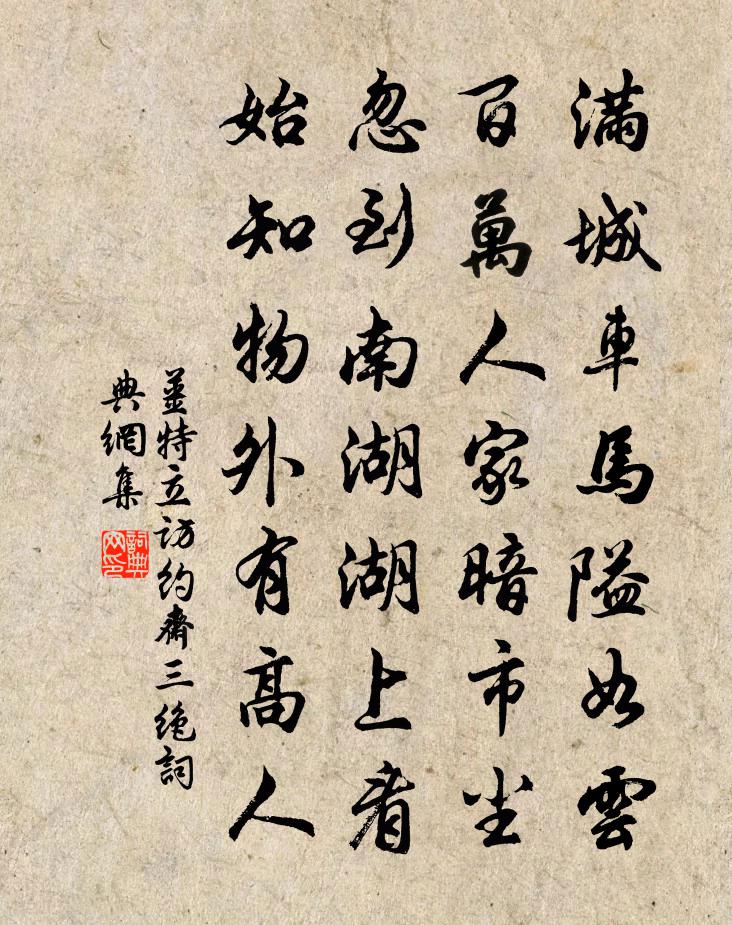 滿城車馬隘如雲
百萬人家暗市尘
忽到南湖湖上看
始知物外有高人
薑特立訪約齋三絶詞
典網集
詞典
网印